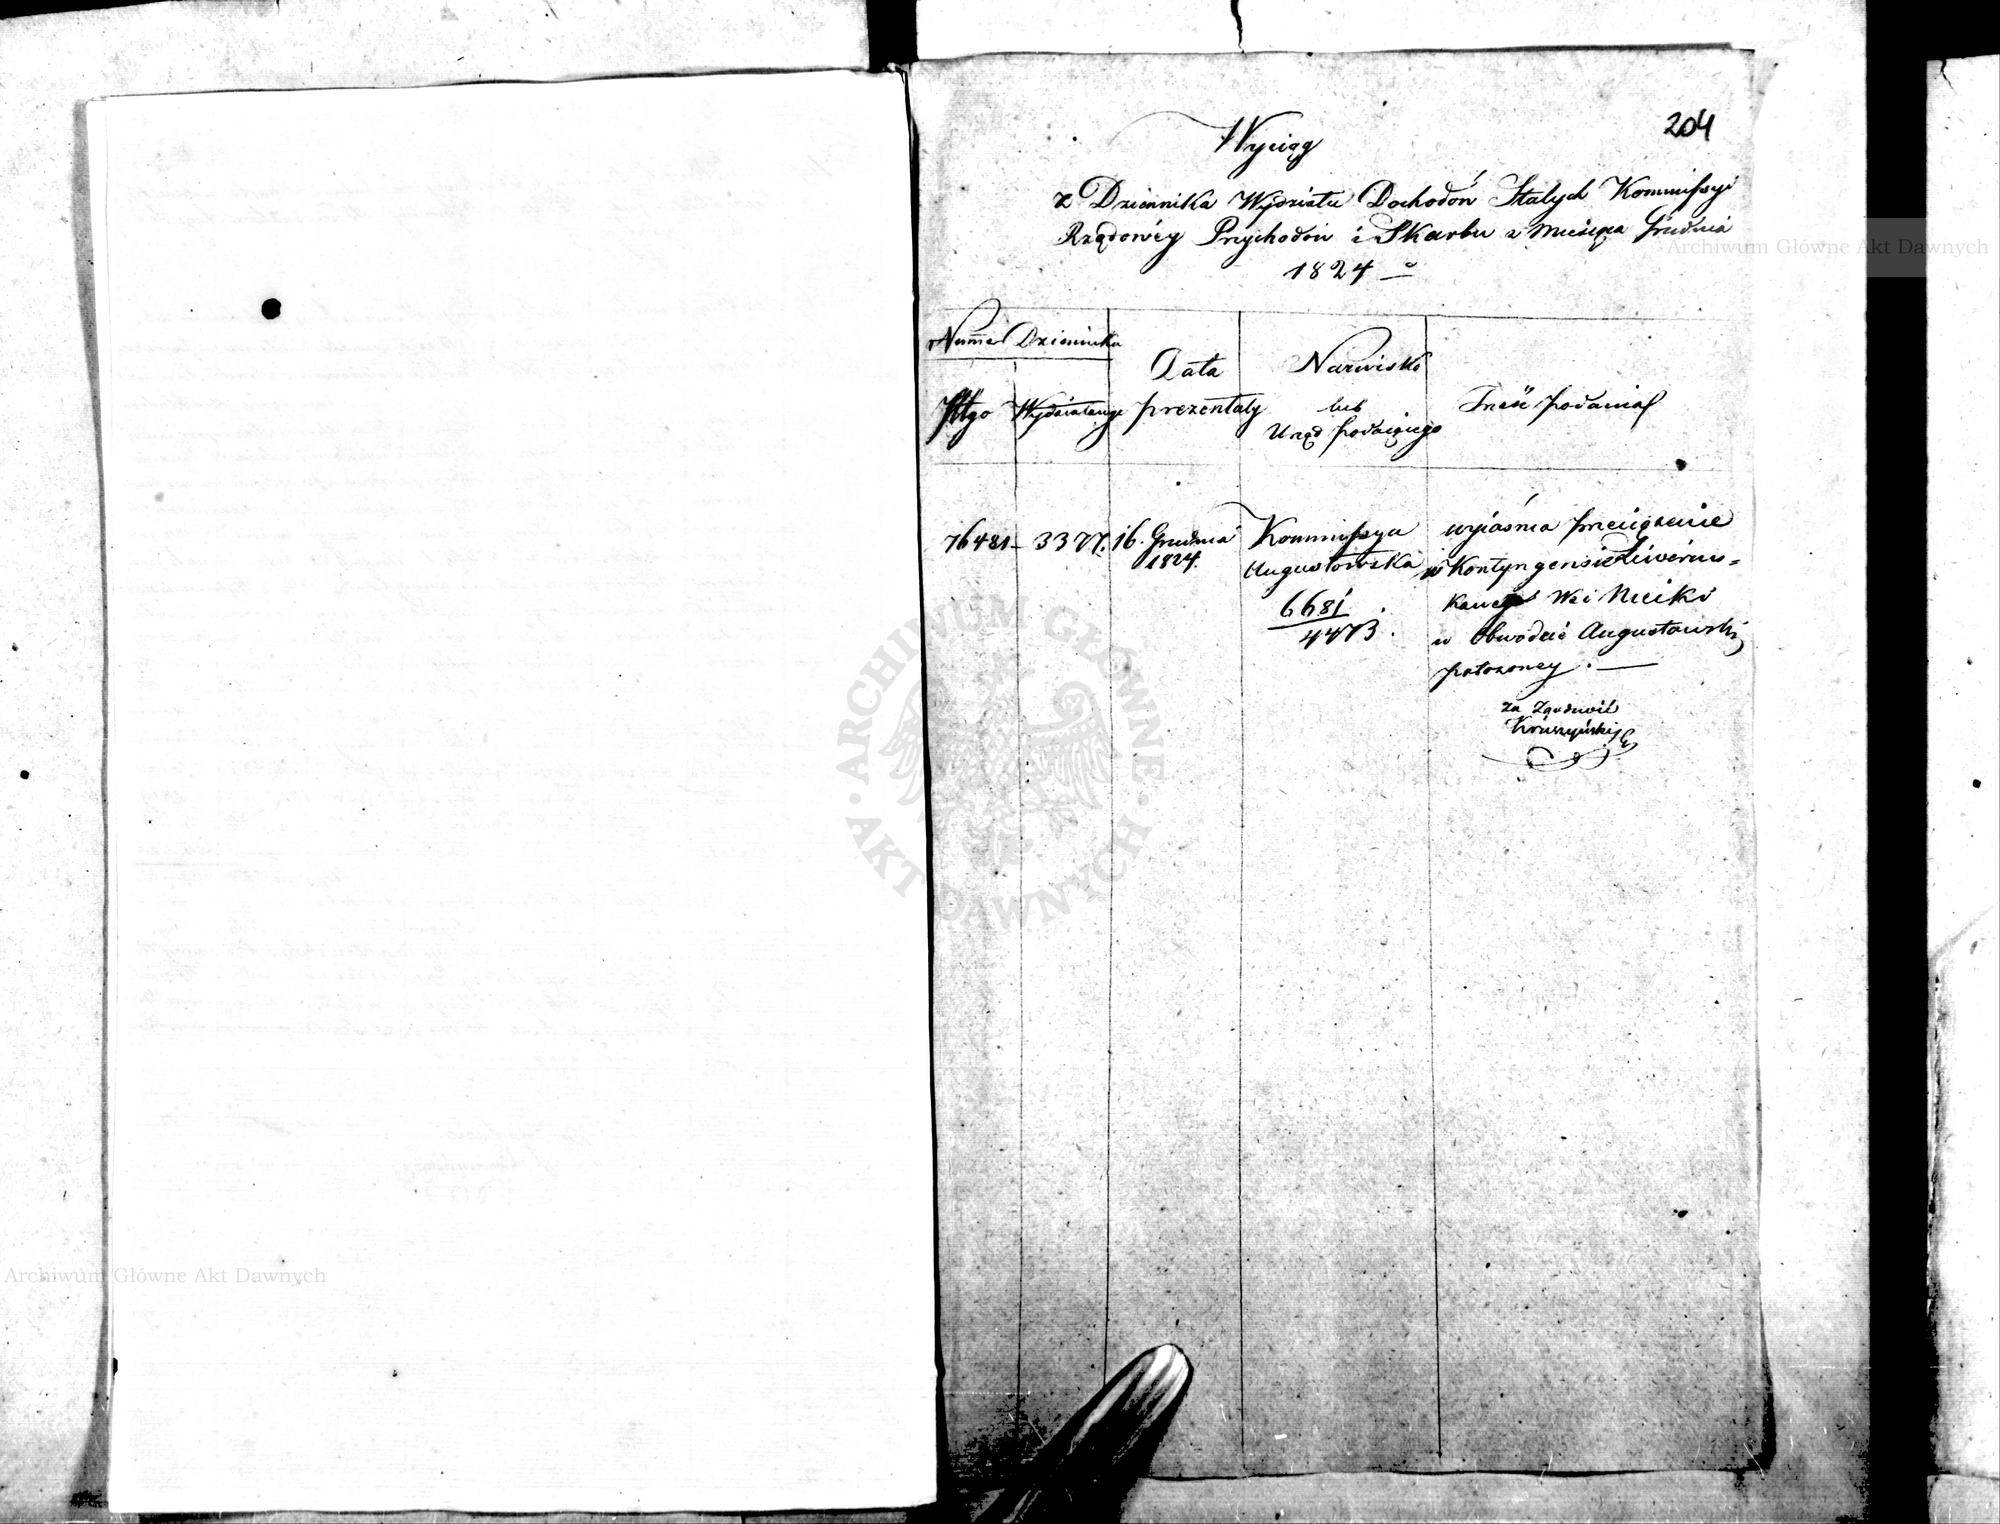 204
Wyciąg
z Dziennika Wydziału Dochodów Stałych Kommissyi
Rządowéy Przychodów i Skarbu z Miesiąca Grudnia
1824
Numer Dziennika
Data
prezentaty
Nazwisko
lub
Urząd podaiącego
Treść podania
76481 - 3377. 16. Grudnia
1824.
Kommissya
Augustowska
6681
4473.
wyiaśnia przeciążenie
w Kontyngensie Liwerun=
kowey Wsi Nieiki
w Obwodzie Augustowski
położoney. —
za zgodność
Kruszyński
ARCHIWUM GŁÓWNE AKT DAWNYCH
Archiwum Główne Akt Dawnych
Archiwum Główne Akt Dawnych